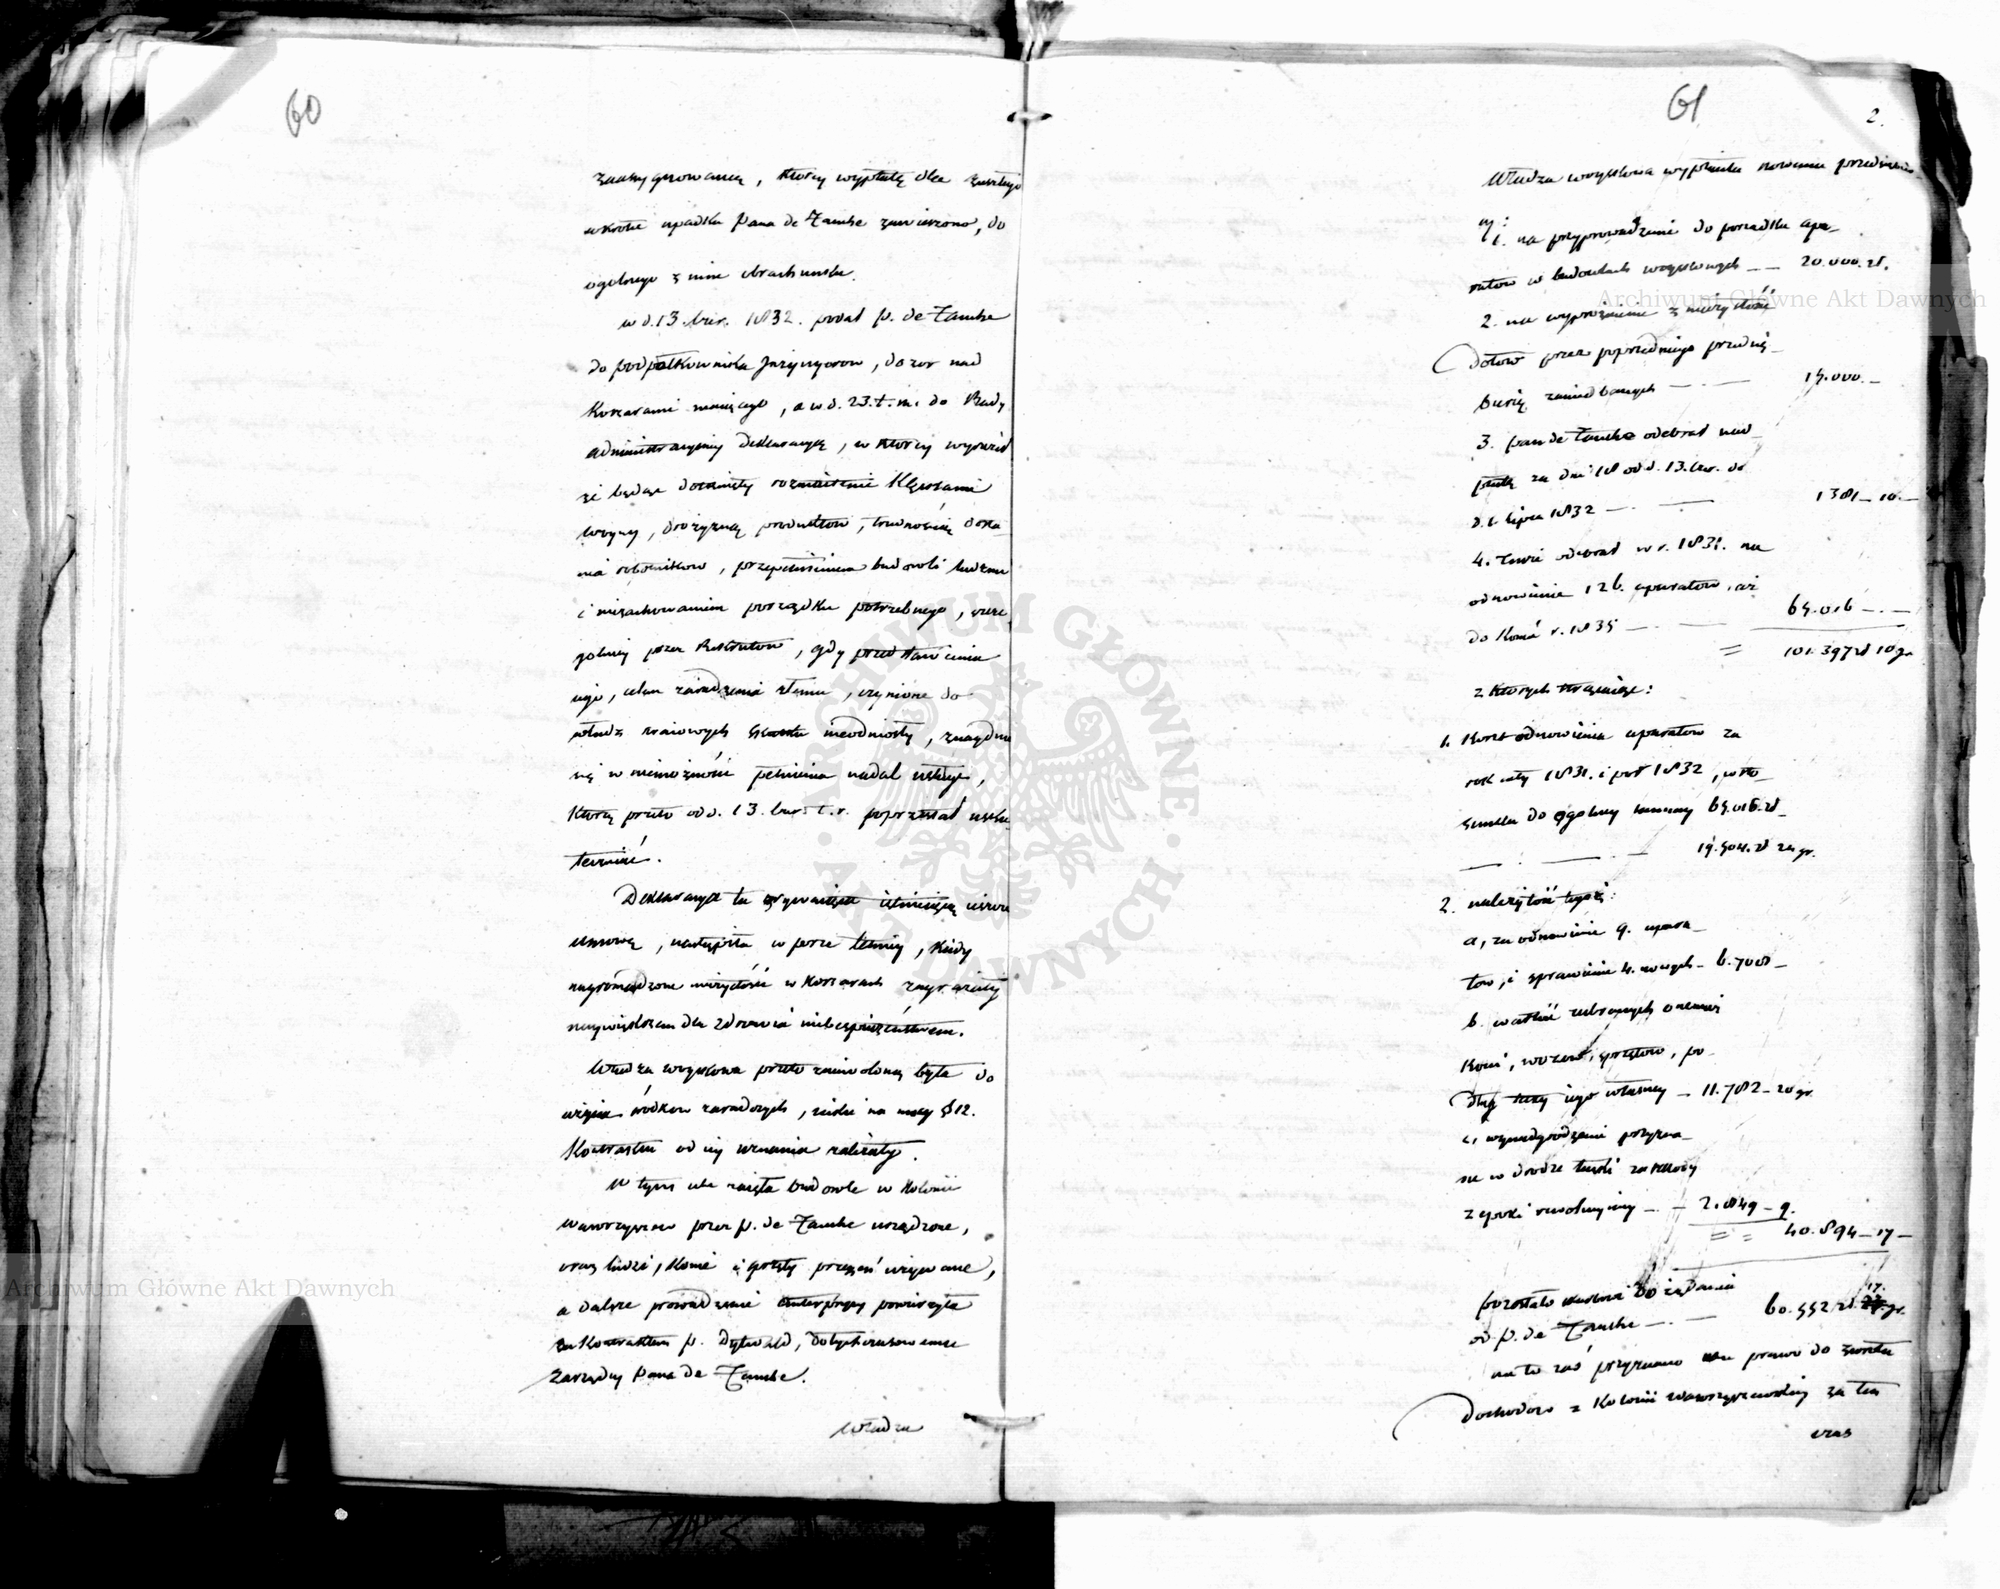 60
zaasygnowaną, którey wypłatę dla zaszłego
wkrótce upadku Pana de Zambe zawieszono, do
ogólnego z nim obrachunku.
w d. 13. czer. 1832. podał P. de Zambe
do podpółkownika Jnżynyerow, dozor nad
Koszarami maiącego, a w d. 23. t. m. do Rady
administracyiney deklaracyą, w którey wyraził
że będąc dotknięty rozmaitemi Klęskami
woyny, drożyzną produktow, trudnością dosta-
nia robotnikow, przepełnieniem budowli ludzmi
i niezachowaniem porządku potrzebnego, szcze-
golniey przez Rekrutow, gdy przedstawienia
iego, celem zaradzenia złemu, czynione do
władz kraiowych skutku nieodniosły, znayduie
się w niemożności pełnienia nadal usługi,
którą przeto od d. 13. czer. t. r. poprzestał usku-
teczniać.
Deklaracya ta zrywaiąca istnieiącą ieszcze
umowę, nastąpiła w porze letniey, kiedy
nagromadzone nieczystości w Koszarach zagrażały
naywiększem dla zdrowia niebezpieczeństwem.
Władza woyskowa przeto zniewoloną była do
użycia środkow zaradczych, iakie na mocy § 12.
Kontraktu od iey uznania zależały.
W tym celu zaięła budowle w Kolonii
Wawrzyszew przez P. de Zambe urządzone,
oraz ludzi, konie i sprzęty przezeń używane,
a dalsze prowadzenie enterpryzy powierzyła
za Kontraktem P. Dytwald, dotychczasowemu
Zarządcy Pana de Zambe.
Władza
61
2.
Władza woyskowa wypłaciła nowemu przedsiebior-
cy:
1. na przyprowadzenie do porządku apa-
ratow w budowlach woyskowych — 20.000. zł.
2. na wyproznienie z nieczystości
dołow przez poprzedniego przedsię-
biercę zaniedbanych — — 15.000. —
3. pan de Zambe odebrał nad-
płatę za dni 18 od d. 13. czer. do
d. 1 lipca 1832 — — 1381 — 10. —
4. Tenże odebrał w r. 1831. na
odnowienie 126. aparatow, aż
do końca r. 1835 — — 65.016 — . —
= 101.397 zł 10 gr
z których strąciwszy:
1. Koszt odnowienia aparatow za
rok cały 1831. i pół 1832, w sto-
sunku do ogolney summy 65.016. zł —
— . — . — 19.504. zł 24 gr.
2. należytość tegoż:
a, za odnowienie 9. apara-
tow, i sprawienie 4. nowych — 6.708 —
b. wartość zabranych onemuż
koni, wozow, sprzętow, po-
dług taxy iego własney — 11.782 — 20 gr.
c, wynadgrodzenie przyzna-
ne w drodze łaski za szkody
z epoki rewolucyiney — — 2.849 — 9.
= = 40.894 — 17 —
pozostało skarbowi do żądania
od P. de Zambe — — 60.552 zł. 17. gr.
na to zaś przyznano mu prawo do zwrotu
Dochodow z Kolonii Wawrzyszewskiey za ten
czas
Archiwum Główne Akt Dawnych
Archiwum Główne Akt Dawnych
ARCHIWUM GŁÓWNE · AKT DAWNYCH ·